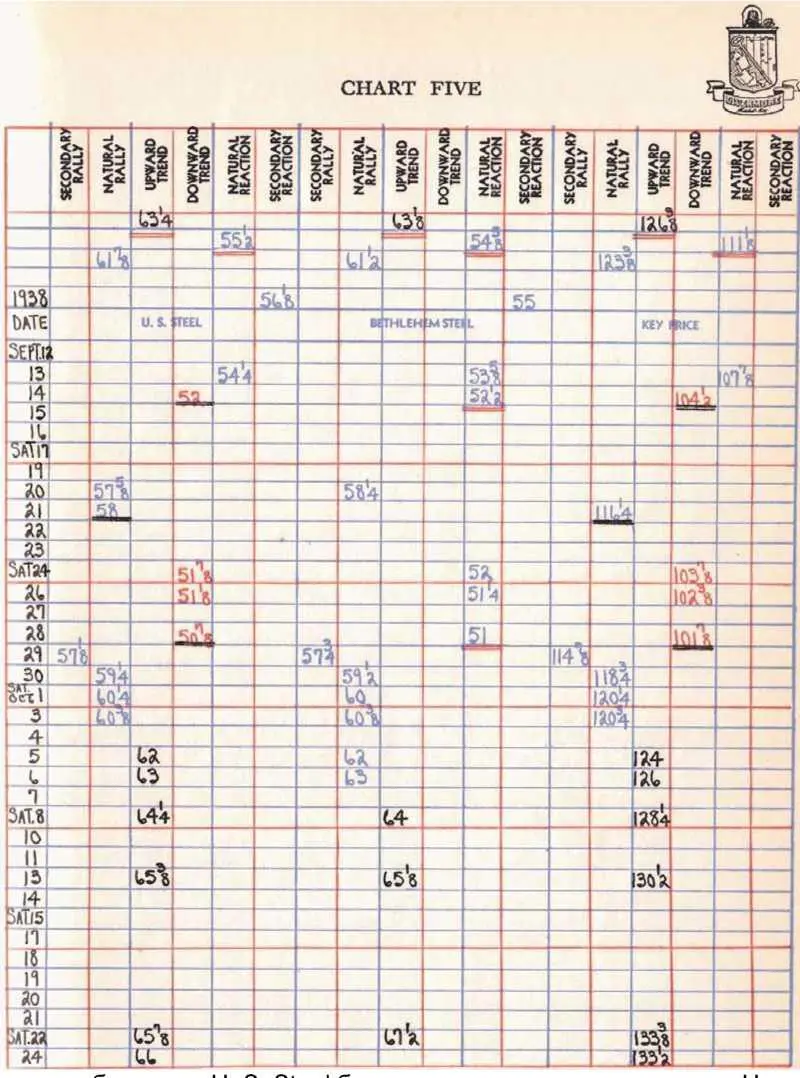 CHART FIVE
SECONDARY RALLY NATURAL RALLY UPWARD TREND DOWNWARD TREND NATURAL REACTION SECONDARY REACTION SECONDARY RALLY NATURAL RALLY UPWARD TREND DOWNWARD TREND NATURAL REACTION SECONDARY REACTION SECONDARY RALLY NATURAL RALLY UPWARD TREND DOWNWARD TREND NATURAL REACTION SECONDARY REACTION
63 1/4 63 1/8 126 3/8
55 1/2 54 3/8 111 1/8
61 7/8 61 1/2 123 3/8
1938 56 1/8 55
DATE U. S. STEEL BETHLEHEM STEEL KEY PRICE
SEPT.12
13 54 1/4 53 5/8 107 7/8
14 52 52 1/2 104 1/2
15
16
SAT.17
19
20 57 5/8 58 1/4
21 58 116 1/4
22
23
SAT24 51 7/8 52 103 7/8
26 51 1/8 51 1/4 102 3/8
27
28 50 7/8 51 101 7/8
29 57 1/8 57 3/4 114 7/8
30 59 1/4 59 1/2 118 3/4
SAT. OCT 1 60 1/4 60 120 1/4
3 60 3/8 60 3/8 120 3/4
4
5 62 62 124
6 63 63 126
7
SAT.8 64 1/4 64 128 1/4
10
11
13 65 3/8 65 1/8 130 1/2
14
SAT.15
17
18
19
20
21
SAT.22 65 7/8 67 1/2 133 3/8
24 66 133 1/2